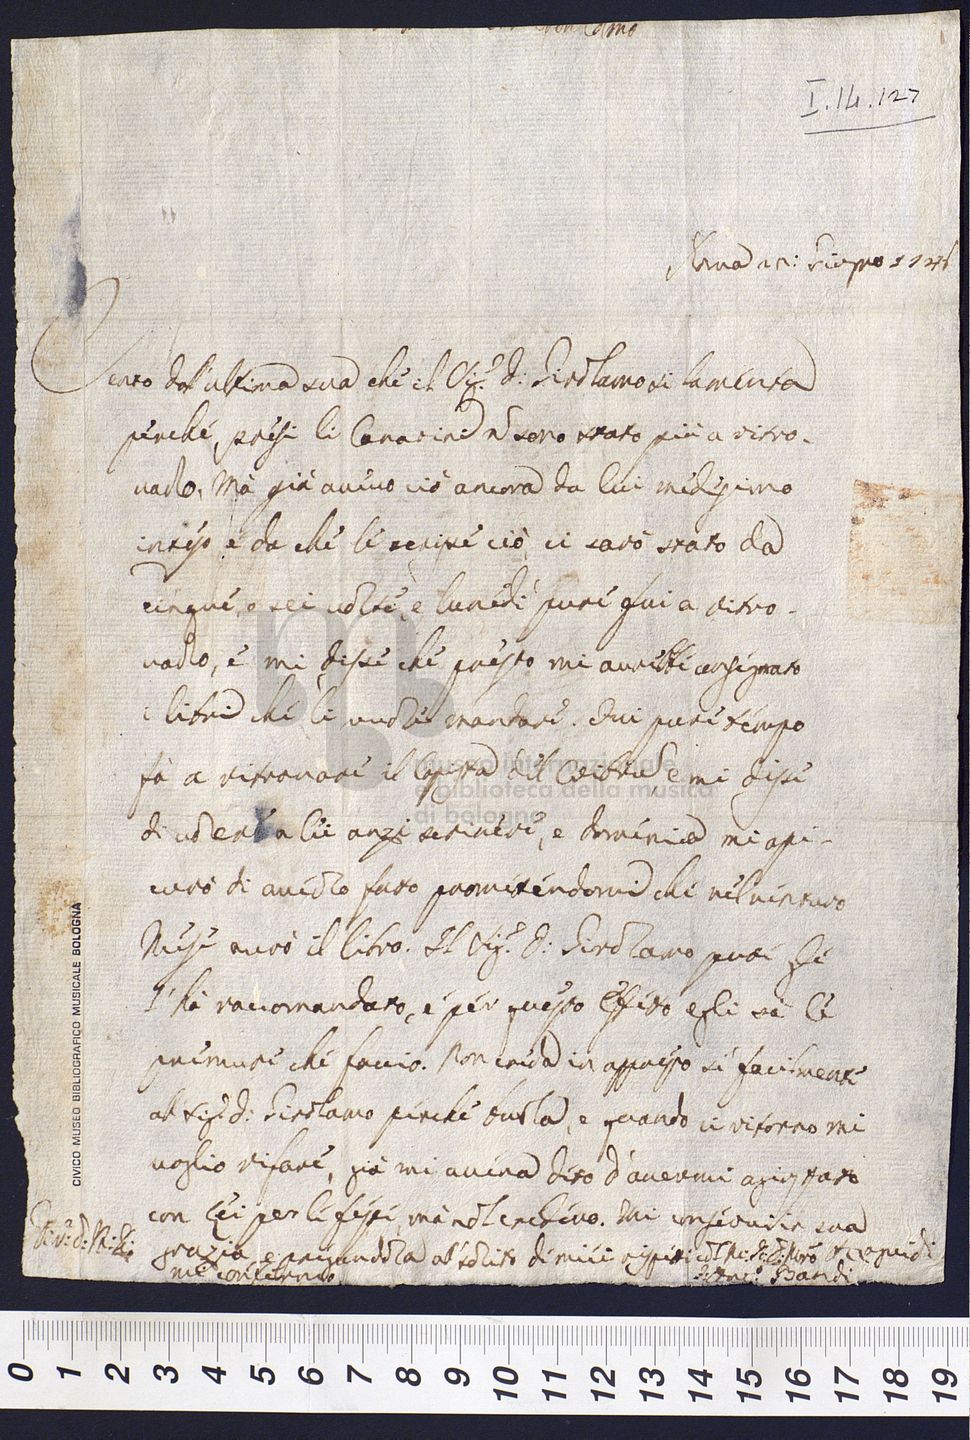 I.14.127
Roma 25: Giugno 1746
Sento dall'ultima sua che il Sigr. D: Girolamo si lamenta
perché, presi li Canarini nō sono stato più a ritro-
varlo. Mà già avevo ciò ancora da lui medesimo
inteso e da che le scrissi ciò, ci sarò stato da
cinque, o sei volte, e lunedì pure fui a ritro-
varlo, e mi disse che presto mi avrebbe consegnato
i libri che li vuole mandare. Fui pure tempo
fà a ritrovare il e mi disse
di voler a lei anzi scrivere, e domenica mi assi-
curò di averlo fatto promettendomi che nel venturo
Mese avrò il libro. Il Sigr. D: Girolamo pure
l'hà raccomandato, e per questo effetto egli sà le
premure che faccio. Non creda in appresso sì facilmente
al Sigr. D: Girolamo perché burla, e quando ci ritorno mi
voglio rifare, già mi aveva dito d'avermi agiustato
con Lei per le feste, mà nol credevo. Mi conservi in sua
grazia, e al solito de miei rispetti
me confermo
Bandi
CIVICO MUSEO BIBLIOGRAFICO MUSICALE BOLOGNA
museo internazionale
e biblioteca della musica
di bologna
0 1 2 3 4 5 6 7 8 9 10 11 12 13 14 15 16 17 18 19